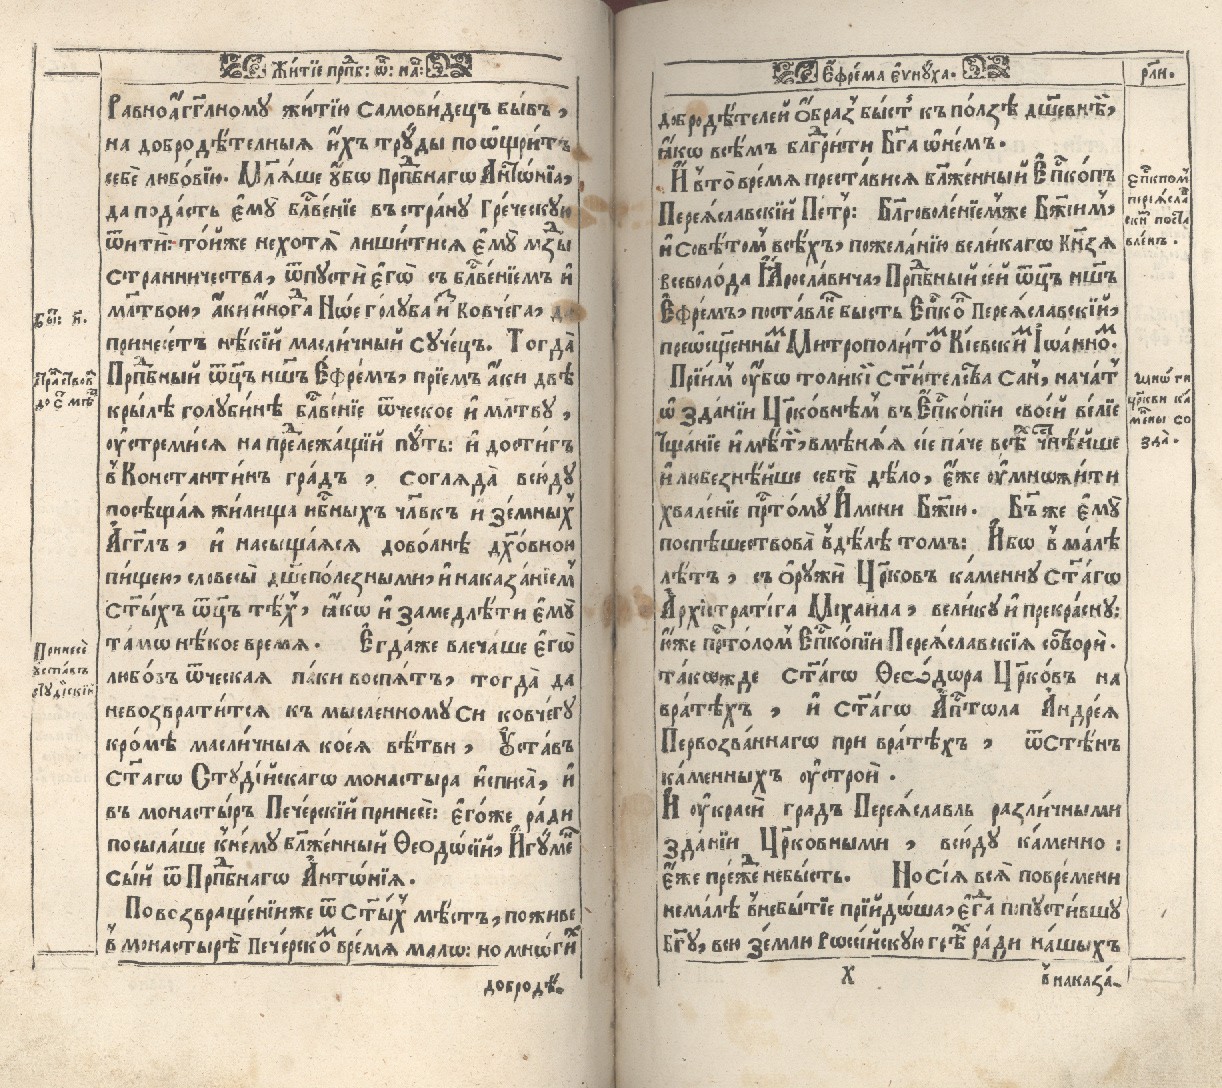 Житїе прпⷣб: ѿ: на:
Равноа́гг҃лному жи́тїю самови́децъ бы́въ,
на добродѣ́телныя и҆́хъ трꙋды̀ поѡ҆щри́тъ
себѐ любо́вїю. Мл҃ѧ́ше ᲂу҆́бѡ Прпⷣбнагѡ А҆нтѡ́нїа,
да пода́сть є҆мꙋ̀ бл҃ве́нїе въ странꙋ Гре́ческꙋю
ѿитѝ: то́йже не хотѧ̀ лиши́тисѧ є҆мꙋ̀ мзды̀
стра́нничества, ѿпꙋстѝ є҆го̀ съ бл҃ве́нїемъ и҆
мл҃твою, а҆́ки и҆ногⷣа Нѡ́е го́лꙋба и҆з̾ Ковче́га, да
принесе́тъ нѣ́кїй ма́сличный сꙋче́цъ. Тогда̀
Бы́т: и҃.
Прпⷣбный ѿц҃ъ нш҃ъ Е҆фре́мъ, прїе́мъ а҆́ки двѣ̀
крылѣ̀ голꙋби́нѣ бл҃ве́нїе ѿ́ческое и҆ мл҃твꙋ,
ᲂу҆стреми́сѧ на преⷣлежа́щїй пꙋ́ть: и҆ дости́гъ
в̾ Константи́нъ гра́дъ, соглѧда̀ всю́дꙋ
посѣща́ѧ жили́ща нб҃ныхъ чл҃вкъ и҆ земны́хъ
А҆́гг҃лъ, и҆ насыща́ѧсѧ дово́лнѣ дꙋхо́вною
пи́щею, словесы̀ дш҃еполе́зными, и҆ наказа́нїемъ
ст҃ы́хъ ѿц҃ъ тѣ́хъ, ꙗ҆́кѡ и҆ замедлѣ́ти є҆мꙋ̀
та́мѡ нѣ́кое вре́мѧ. Е҆гда́же влеча́ше є҆гѡ̀
любо́въ ѿ́ческаѧ па́ки воспѧ́тъ, тогда̀ да
невозврати́тсѧ къ мы́сленномꙋ си ковче́гꙋ
Принесѐ
ᲂу҆ста́въ
стꙋді́йскїй
кро́мѣ ма́сличныѧ ко́еѧ вѣ́тви, Оу҆ста́въ
ст҃а́гѡ Стꙋді́йскагѡ монастыра̀ и҆списа̀, и҆
въ монасты́ръ Пече́рскїй принесѐ: є҆го́же ра́ди
посыла́ше к̾ не́мꙋ бл҃же́нный Ѳеѡдѡ́сїй, И҆гꙋ́ме
сы́й ѿ Прпⷣбнагѡ А҆нтѡ́нїѧ.
По возвраще́нїи же ѿ ст҃ы́хъ мѣ́стъ, пожи́ве
в̾ монастырѣ̀ Пече́рскоⷨ вре́мѧ ма́лѡ: но мнѡ́гиⷯ
добродѣ́-
Е҆фре́ма є҆ѵнꙋ́ха.
рл҃и.
добродѣ́телей ѻ҆́бразъ бы́стъ къ по́лзѣ дш҃е́внѣй,
ꙗ҆́кѡ всѣ́мъ благⷣри́ти Бг҃а ѡ҆ не́мъ.
И҆ в̾ то̀ вре́мѧ преста́висѧ бл҃же́нный Е҆пⷭ҇ко́пъ
Переѧ́славскїй Пе́тръ: Бл҃говоле́нїемъже Бж҃їимъ,
и҆ совѣ́томъ всѣ́хъ, пожела́нїю вели́кагѡ Кнѧ́зѧ
все́волода Ꙗ҆росла́вича, Прпⷣбный се́й ѿц҃ъ нш҃ъ
Е҆фре́мъ, поста́вле бы́сть Е҆пⷭ҇ко Переѧ́славскїй,
преѡсщ҃е́нныⷨ Митрополи́тоⷨ Кі́евскиⷨ І҆ѡа́нноⷨ.
Е҆пⷭ҇копоⷨ
переѧ́сла
скиⷨ поста́
вле́нъ.
Прїи́мъ ᲂу҆́бѡ толи́кїй ст҃и́телства са́нъ, нача́тъ
ѡ҆ зда́нїи Цр҃ко́внѣмъ въ Е҆пⷭ҇ко́пїи свое́й ве́лїе
тща́нїе и҆мѣ́тъ, вмѣнѧ́ѧ сїѐ па́че всѣⷯ чⷭ҇тнѣ́йше
и҆ любезнѣ́йше себѣ̀ дѣ́ло, є҆́же ᲂу҆мно́жити
хвале́нїе прⷭ҇то́мꙋ И҆́мени Бж҃їю. Бг҃ъ же є҆мꙋ̀
поспѣ́шествова̀ в̾ дѣ́лѣ то́мъ: И҆́бѡ в̾ ма́лѣ
цр҃кви ка́
мены со
зда̀.
лѣ́тъ, съѻрꙋжѝ Цр҃ковъ ка́менꙋ ст҃а́гѡ
А҆рхїстрати́га Мїхаи́ла, вели́кꙋ и҆ прекра́снꙋ:
ю҆́же прⷭ҇то́лоⷨ Е҆пⷭ҇ко́пїи Переѧ́славскїѧ сотворѝ.
та́кѡжде ст҃а́гѡ Ѳео́дѡра Цр҃ко́въ на
врате́хъ, и҆ ст҃а́гѡ А҆пⷭ҇тола А҆ндре́ѧ
Первозва́ннагѡ при врате́хъ, ѿ стѣ́нъ
ка́менныхъ ᲂу҆строѝ.
И҆ ᲂу҆красѝ гра́дъ Переѧ́славль разли́чными
зда́нїи Цр҃ко́вными, всю́дꙋ ка́менно:
є҆́же пре́жⷣе небы́сть. Но сїѧ̀ всѧ̀ повре́мени
нема́лѣ в̾ небытїѐ прїидо́ша, є҆гⷣа попꙋсти́вшꙋ
Бг҃ꙋ, всю зе́млю Рѡссі́йскꙋю грѣⷯ ра́ди на́шыхъ
Х
в̾ наказа́-